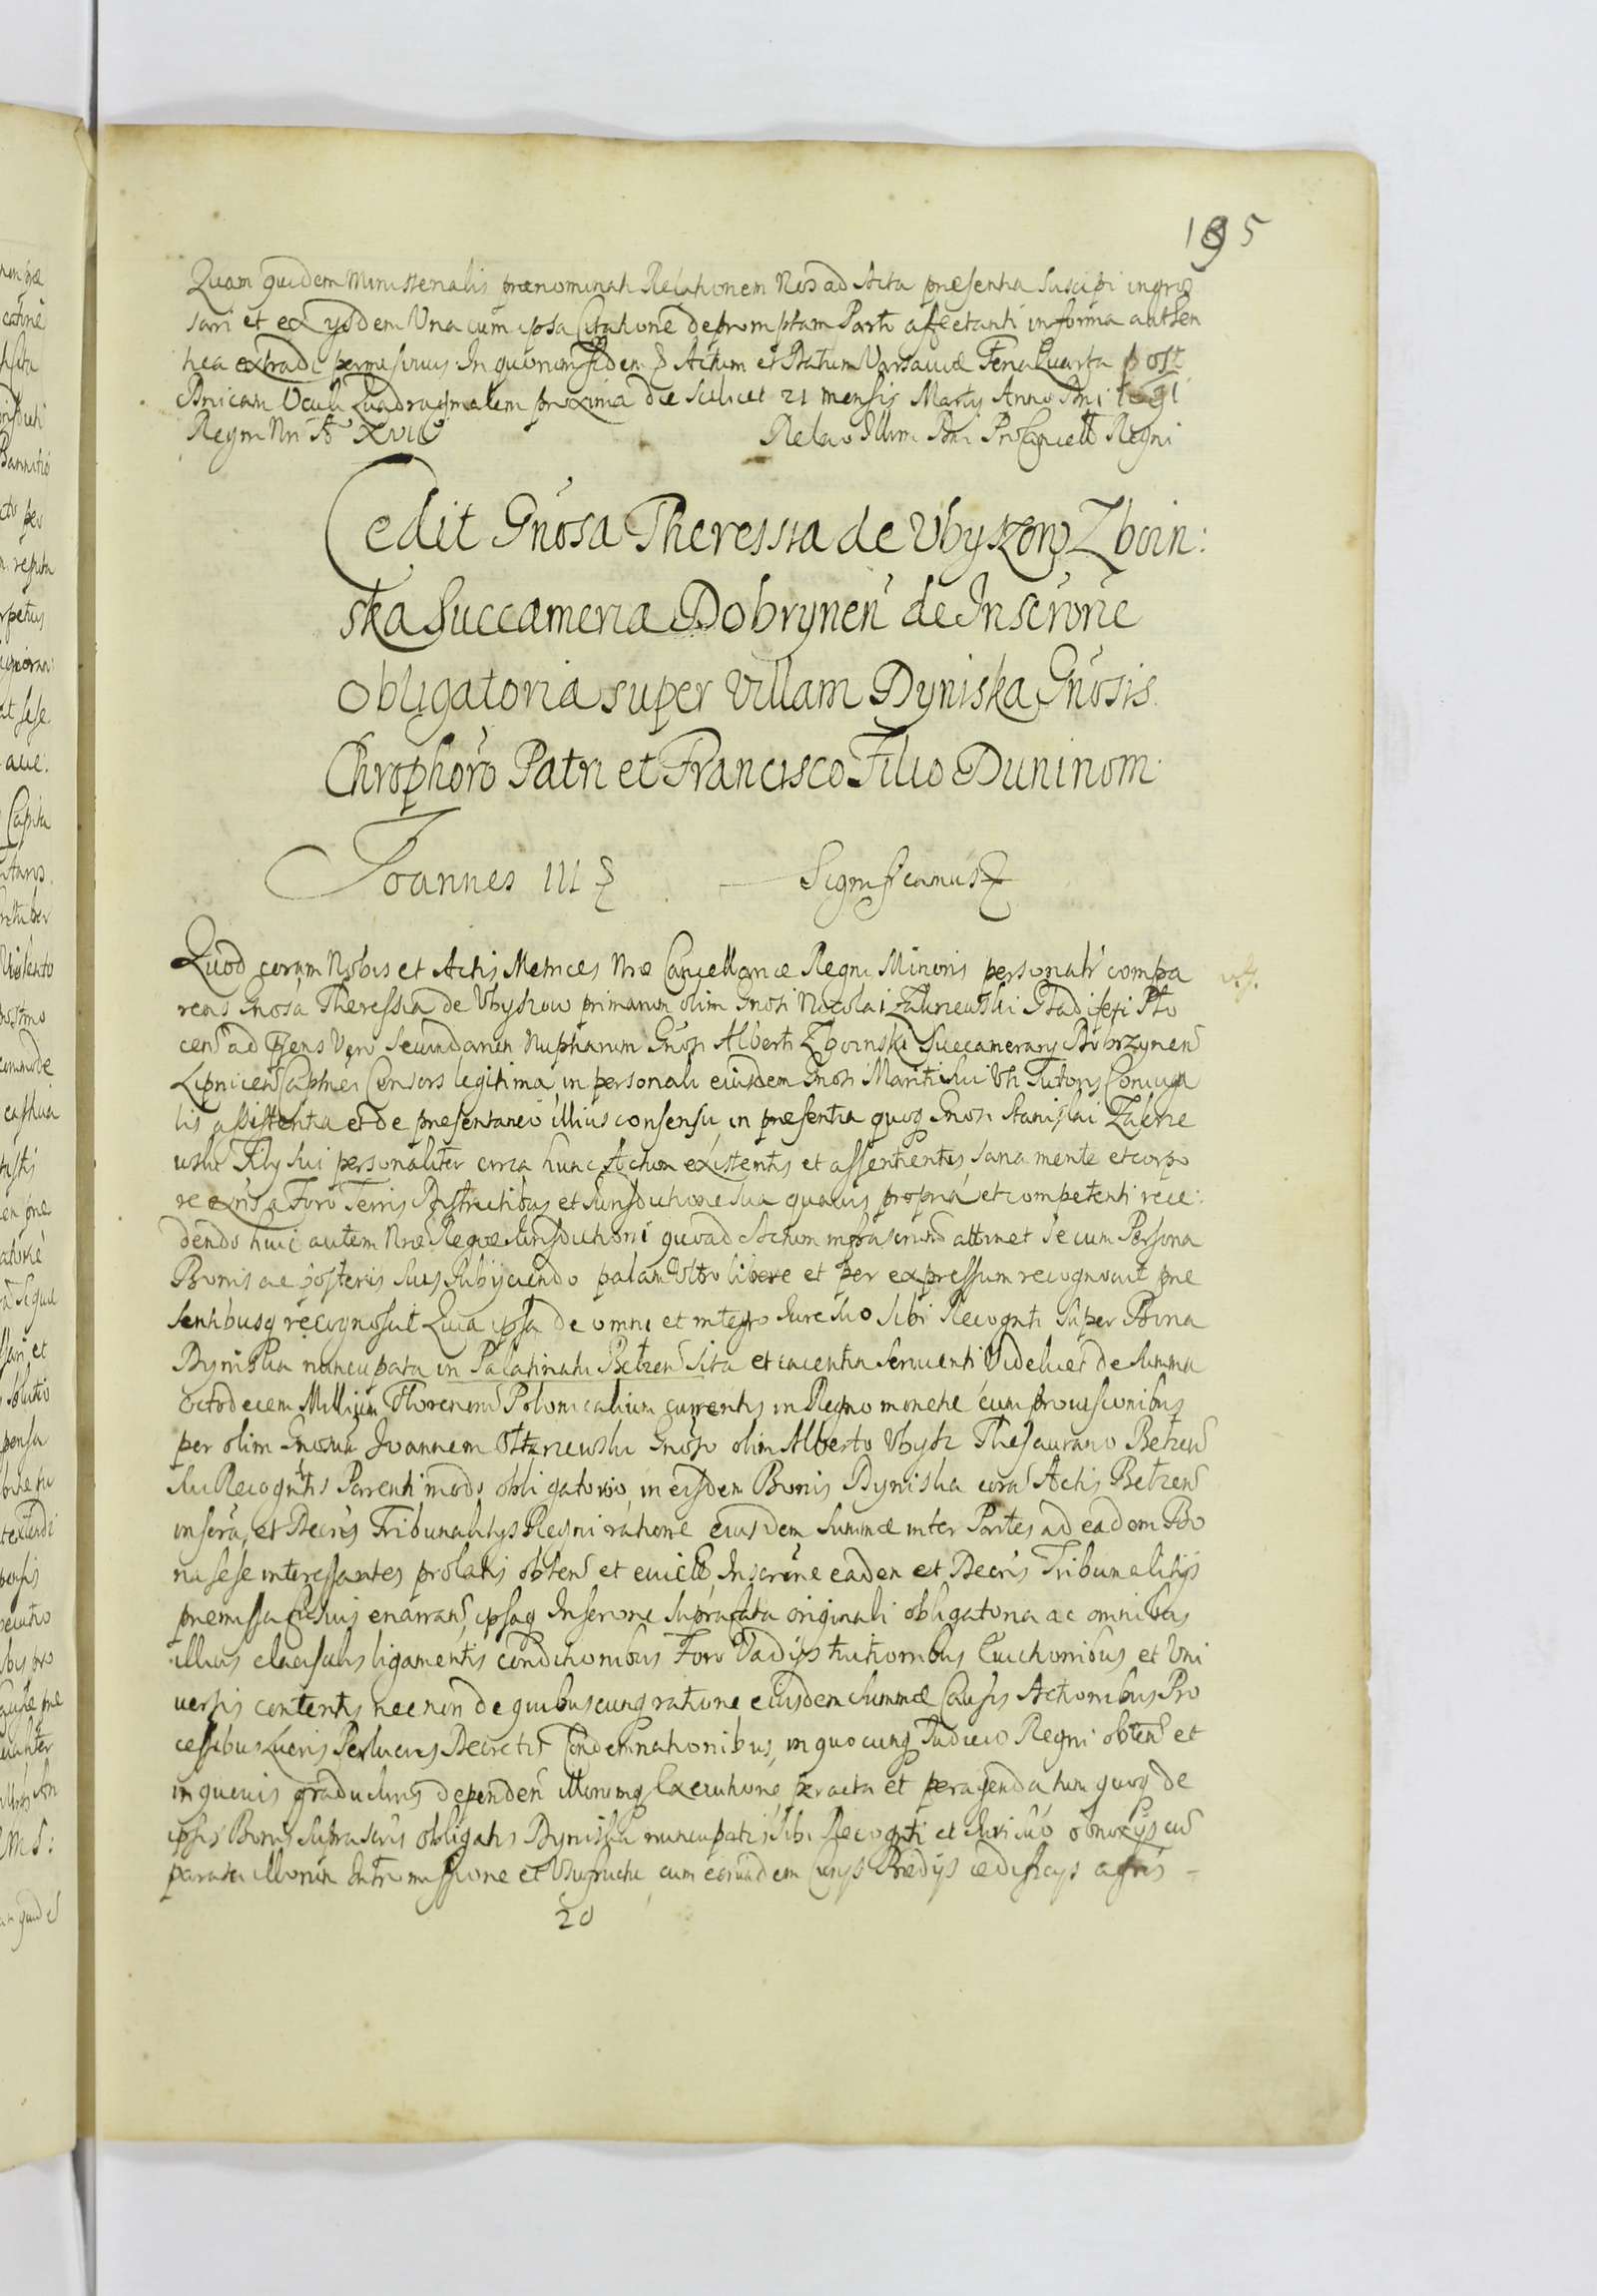 195
Quam quidem Ministerialis prænominati Relationem Nos ad Acta præsentia suscipi ingros
sari et ex ijsdem Una cum ipsa Citatione depromptam Parti affectanti in forma authen
tica extradi permisimus In quorum fidem Actum et Datum Varsaviæ Feria Quarta post
Dnicam Oculi Quadragesimalem proxima die scilicet 21 mensis Martij Anno Dni 1691
Regni Nri Ao XVII Relao Illrm Dni ProCancell Regni
Cedit Gnosa Theressia de Vhyskow Zboin:
ska Succameria Dobrynen de Inscrone
obligatoria super Villam Dyniska Gnosis
Chrophoro Patri et Francisco Filio Duninom
Joannes III Significamus
Quod coram Nobis et Actis Metrices Nræ Cancellariæ Regni Minoris personalr compa
rens Gnosa Theressia de Vhyskow primarum olim Gnosi Nicolai Zakrzewski Gladiferi Plo
cen ad præsens Vero Secundarum Nuptiarum Gnosi Alberti Zboinski Succamerarij Dobrzynen
Lipnicen Captnei Consors legitima, in personali eiusdem Gnosi Mariti sui Uti Tutoris Coniuga
lis assistentia et de præsentaneo illius consensu, in præsentia quoq Gnosi Stanislai Zakrze
wski Filij sui personaliter circa hunc Actum existentis et assentientis, sana mente et corpo
re exns a Foro Terris Districtibus et Jurisdictione sua quavis propria et competenti rece:
dendo huic autem Nræ Regiæ Jurisdictioni quoad Actum infrascrium attinet se cum Persona
Bonis ac posteris suis subijciendo palam Ultro libere et per expressum recognovit præ
sentibusq recognoscit Quia ipsa de omni et integro Jure suo sibi Recognti super Bona
Dyniska nuncupata in Palatinatu Belzen sita et iacentia serviente Videlicet de summa
octodecem Millium Florenorum Polonicalium currentis in Regno monetæ cum provisionibus
per olim Gnosum Joannem Gnoso olim Alberto Vhysk Thesaurario Belzen
sui Recogntis Parenti modo obligatorio, in eisdem Bonis Dyniska cora Actis Belzen
inscra, et Decris Tribunalitijs Regni ratione eiusdem summæ inter Partes ad eadem Bo
na sese interessantes prolatis obten et evict, Inscrone eadem et Decris Tribunalitijs
præmissa enarran, ipsaq Inscrone suprafata originali obligatoria ac omnibus
illius clausulis ligamentis conditionibus Foro Vadijs tuitionibus Evictionibus et Uni
versis contentis necnon de quibuscunq ratione eiusdem summæ Causis Actionibus Pro
cessibus Lucris Perlucris Decretis Condemnationibus, in quocunq Judicio Regni obten et
in quovis gradu Juris dependen illorumq Executione peracta et peragenda tum quoq de
ipsis Bonis suprascris obligatis Dyniska nuncupatis sibi Recognti et Juri suo obnoxijs cu
parata illorum Intromissione et Usufructu, cum eorundem Curijs Prædijs ædificijs agris -
20